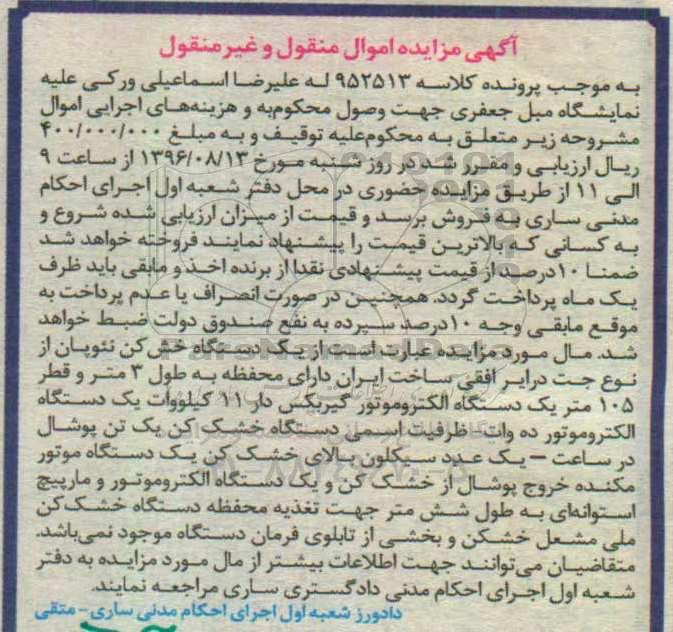 آگهی مزایده اموال منقول و غیرمنقول
به موجب پرونده کلاسه ۹۵۲۵۱۳ له علیرضا اسماعیلی ورکی علیه
نمایشگاه مبل جعفری جهت وصول محکوم‌به و هزینه‌های اجرایی اموال
مشروحه زیر متعلق به محکوم‌علیه توقیف و به مبلغ ۴۰۰/۰۰۰/۰۰۰
ریال ارزیابی و مقرر شد در روز شنبه مورخ ۱۳۹۶/۰۸/۱۳ از ساعت ۹
الی ۱۱ از طریق مزایده حضوری در محل دفتر شعبه اول اجرای احکام
مدنی ساری به فروش برسد و قیمت از میزان ارزیابی شده شروع و
به کسانی که بالاترین قیمت را پیشنهاد نمایند فروخته خواهد شد
ضمنا ۱۰درصد از قیمت پیشنهادی نقدا از برنده اخذ و مابقی باید ظرف
یک ماه پرداخت گردد. همچنین در صورت انصراف یا عدم پرداخت به
موقع مابقی وجه ۱۰درصد سپرده به نفع صندوق دولت ضبط خواهد
شد. مال مورد مزایده عبارت است از یک دستگاه خش کن نئوپان از
نوع جت درایر افقی ساخت ایران دارای محفظه به طول ۳ متر و قطر
۱۰۵ متر یک دستگاه الکتروموتور گیربکس دار ۱۱ کیلووات یک دستگاه
الکتروموتور ده وات- ظرفیت اسمی دستگاه خشک کن یک تن پوشال
در ساعت – یک عدد سیکلون بالای خشک کن یک دستگاه موتور
مکنده خروج پوشال از خشک کن و یک دستگاه الکتروموتور و مارپیچ
استوانه‌ای به طول شش متر جهت تغذیه محفظه دستگاه خشک‌کن
ملی مشعل خشکن و بخشی از تابلوی فرمان دستگاه موجود نمی‌باشد.
متقاضیان می‌توانند جهت اطلاعات بیشتر از مال مورد مزایده به دفتر
شعبه اول اجرای احکام مدنی دادگستری ساری مراجعه نمایند.
دادورز شعبه اول اجرای احکام مدنی ساری- متقی